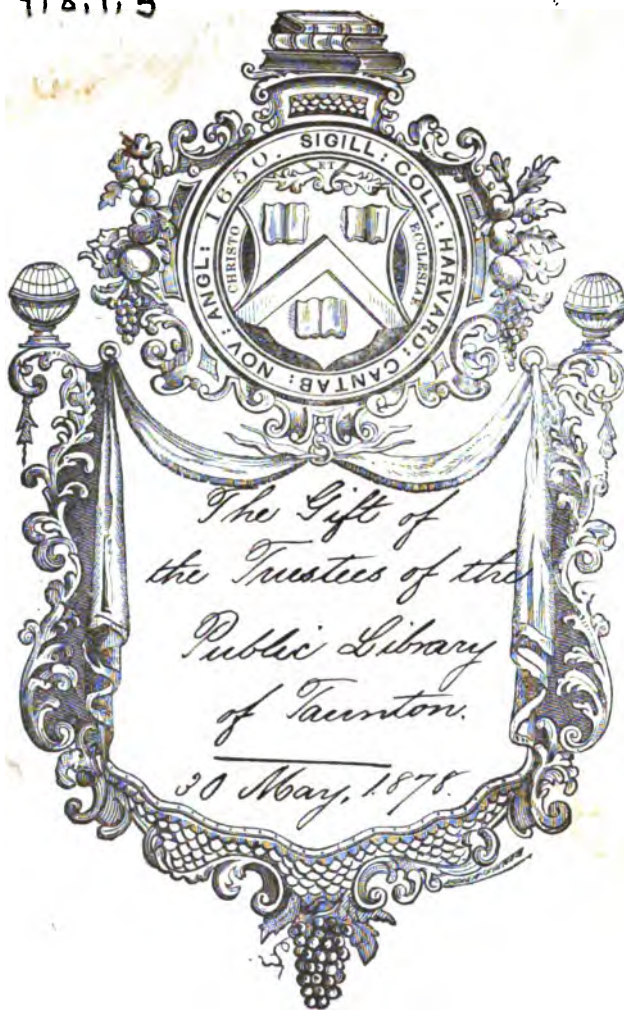 SIGILL: COLL: HARVARD: CANTAB: NOV: ANGL: 1650.
ET
CHRISTO
ECCLESIAE
The Gift of
the Trustees of the
Public Library
of Taunton.
30 May, 1878.